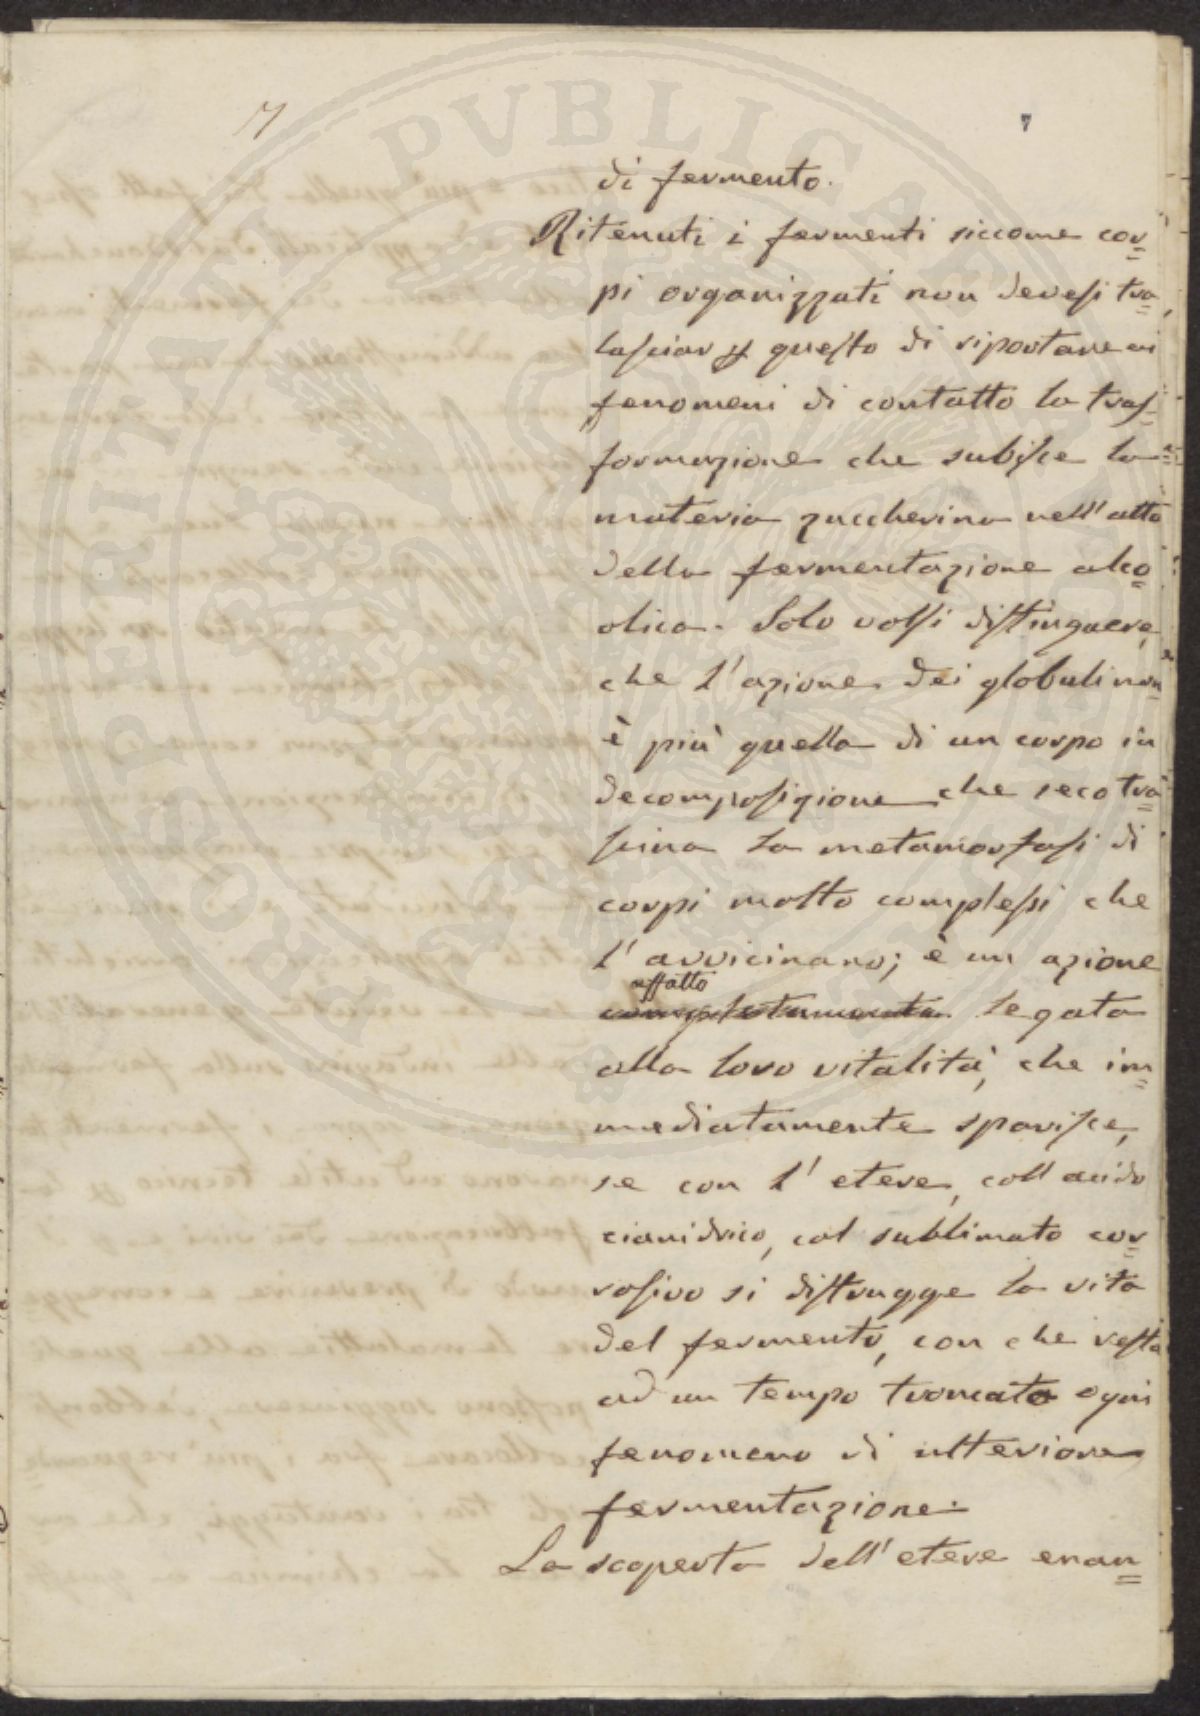 7
7
di fermento.
Ritenuti i fermenti siccome cor=
pi organizzati non devesi tra=
lasciar questo di riportare ai
fenomeni di contatto la tras=
formazione che subisce la
materia zuccherina nell'atto
della fermentazione alco=
olica. Solo volsi distinguere,
che l'azione dei globuli non
è più quella di un corpo in
decomposizione che seco tra=
scina la metamorfosi di
corpi molto complessi che
l'avvicinano; è un azione
affatto
completamente legata
alla loro vitalità, che im=
mediatamente sparisce,
se con l'etere, coll'acido
cianidrico, col sublimato cor=
rosivo si distrugge la vita
del fermento, con che resta
ad un tempo troncato ogni
fenomeno di ulteriore
fermentazione.
La scoperta dell'etere enan=
PROSPERITATI PVBLICAE